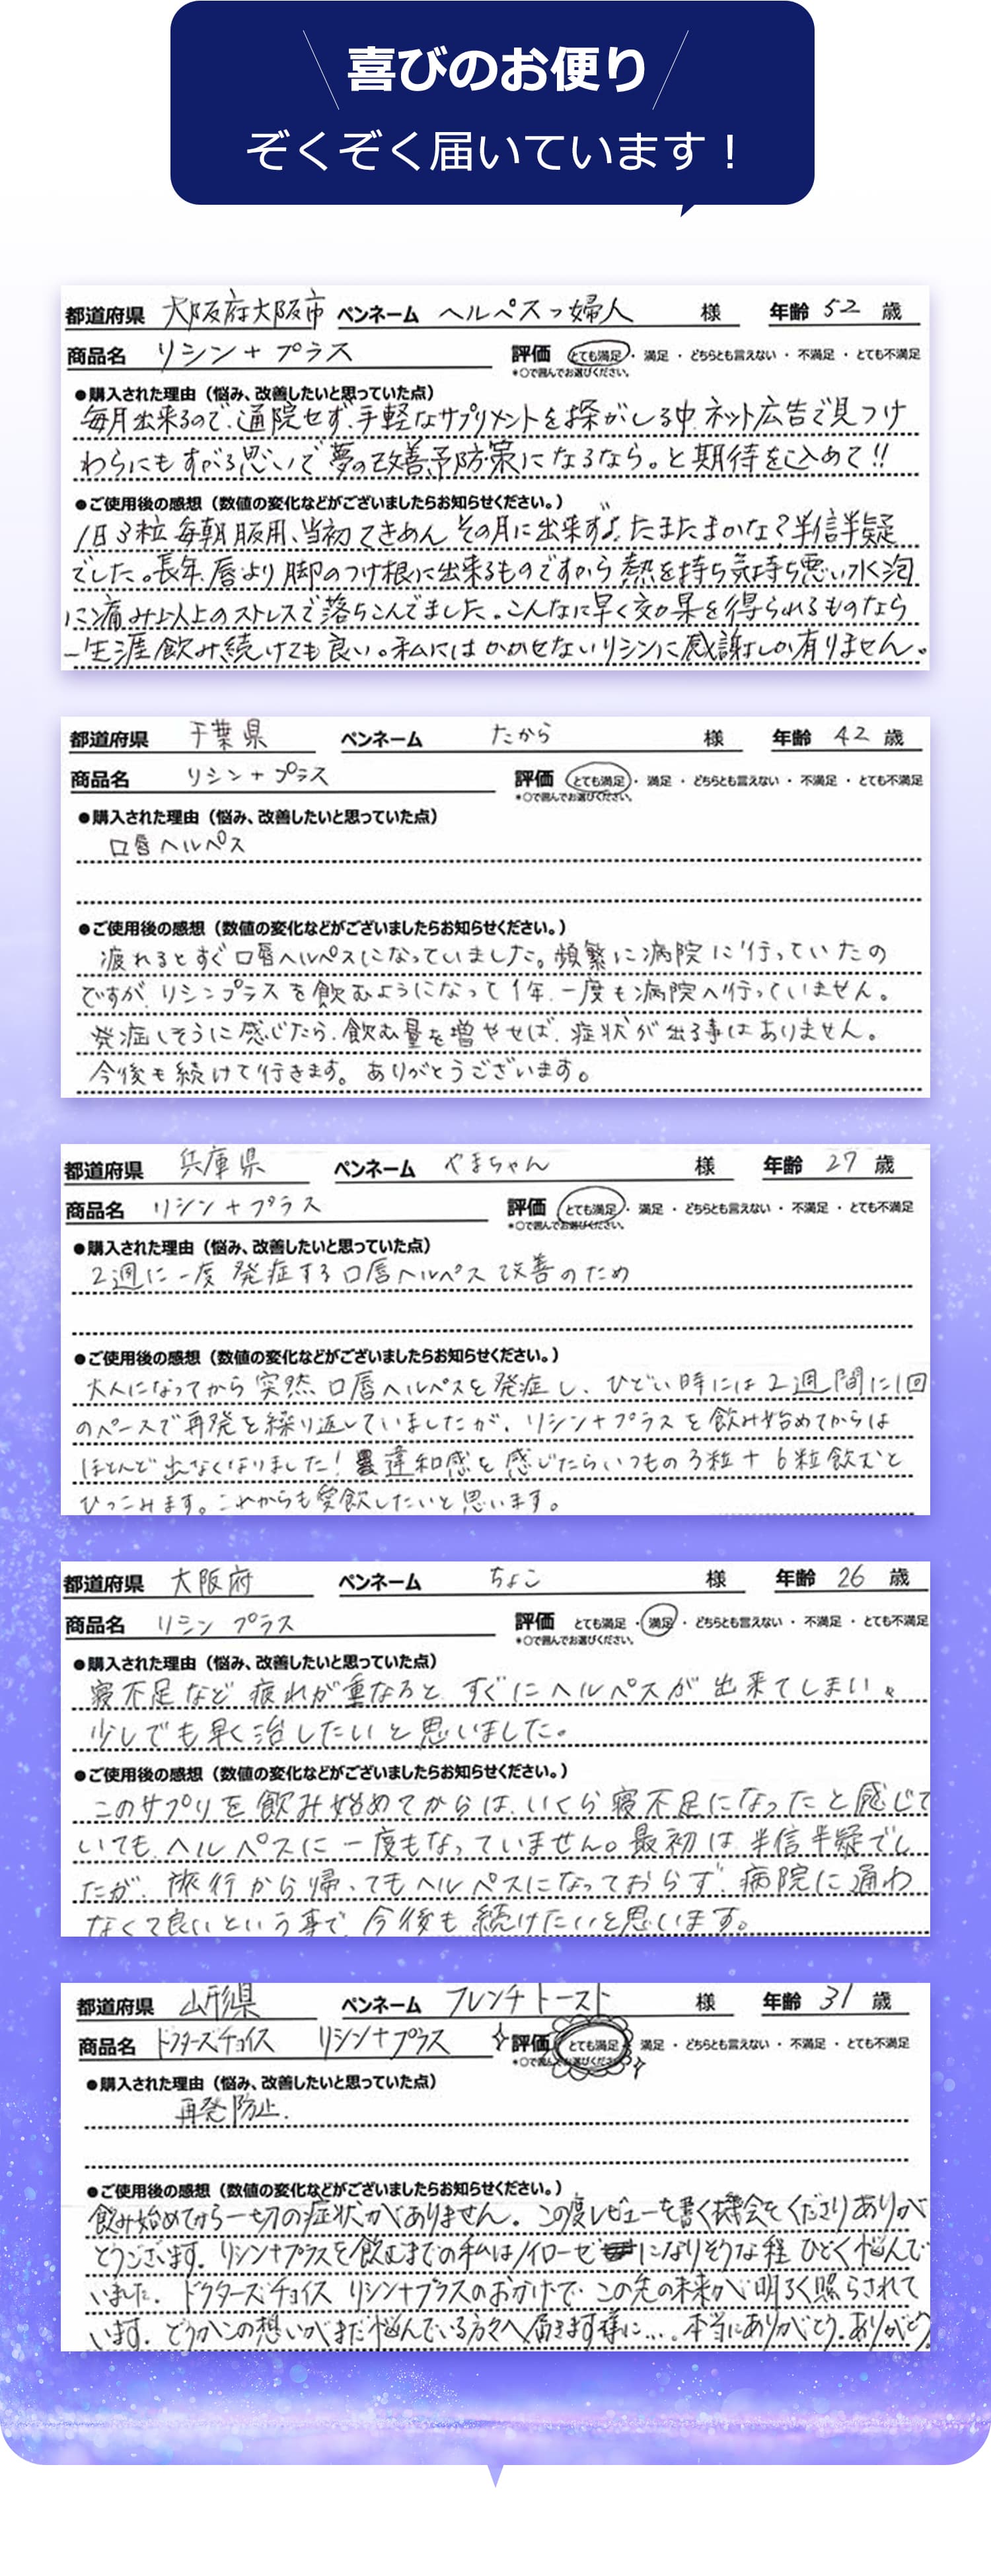 喜びのお便り
ぞくぞく届いています！
都道府県 大阪府大阪市 ペンネーム ヘルペスっ婦人 様 年齢 52 歳
商品名 リシン+プラス 評価 とても満足・満足・どちらとも言えない・不満足・とても不満足
*○で囲んでお選びください。
●購入された理由（悩み、改善したいと思っていた点）
毎月出来るので、通院せず、手軽なサプリメントを探がしる中、ネット広告で見つけ
わらにもすがる思いで夢の改善予防策になるなら。と期待を込めて!!
●ご使用後の感想（数値の変化などがございましたらお知らせください。）
1日3粒毎朝服用、当初てきめんその月に出来ず♪たまたまかな?半信半疑
でした。長年、唇より脚のつけ根に出来るものですから熱を持ち気持ち悪い水泡
に痛み以上のストレスで落ちこんでました。こんなに早く効果を得られるものなら
一生涯飲み続けても良い。私にはかかせないリシンに感謝しか有りません。
都道府県 千葉県 ペンネーム たから 様 年齢 42 歳
商品名 リシン+プラス 評価 とても満足・満足・どちらとも言えない・不満足・とても不満足
*○で囲んでお選びください。
●購入された理由（悩み、改善したいと思っていた点）
口唇ヘルペス
●ご使用後の感想（数値の変化などがございましたらお知らせください。）
疲れるとすぐ口唇ヘルペスになっていました。頻繁に病院に行っていたの
ですが、リシンプラスを飲むようになって1年、一度も病院へ行っていません。
発症しそうに感じたら、飲む量を増やせば、症状が出る事はありません。
今後も続けて行きます。ありがとうございます。
都道府県 兵庫県 ペンネーム やまちゃん 様 年齢 27 歳
商品名 リシン+プラス 評価 とても満足・満足・どちらとも言えない・不満足・とても不満足
*○で囲んでお選びください。
●購入された理由（悩み、改善したいと思っていた点）
2週に一度発症する口唇ヘルペス改善のため
●ご使用後の感想（数値の変化などがございましたらお知らせください。）
大人になってから突然口唇ヘルペスを発症し、ひどい時には2週間に1回
のペースで再発を繰り返していましたが、リシン+プラスを飲み始めてからは
ほとんど出なくなりました！違和感を感じたらいつもの3粒+6粒飲むと
ひっこみます。これからも愛飲したいと思います。
都道府県 大阪府 ペンネーム ちょこ 様 年齢 26 歳
商品名 リシン プラス 評価 とても満足・満足・どちらとも言えない・不満足・とても不満足
*○で囲んでお選びください。
●購入された理由（悩み、改善したいと思っていた点）
寝不足など疲れが重なると、すぐにヘルペスが出来てしまい、
少しでも早く治したいと思いました。
●ご使用後の感想（数値の変化などがございましたらお知らせください。）
このサプリを飲み始めてからは、いくら寝不足になったと感じて
いても、ヘルペスに一度もなっていません。最初は半信半疑でし
たが、旅行から帰ってもヘルペスになっておらず、病院に通わ
なくて良いという事で、今後も続けたいと思います。
都道府県 山形県 ペンネーム フレンチトースト 様 年齢 31 歳
商品名 ドクターズチョイス リシン+プラス 評価 とても満足・満足・どちらとも言えない・不満足・とても不満足
*○で囲んでお選びください
●購入された理由（悩み、改善したいと思っていた点）
再発防止.
●ご使用後の感想（数値の変化などがございましたらお知らせください。）
飲み始めてから一切の症状がありません。この度レビューを書く機会をくださりありが
とうございます。リシン+プラスを飲むまでの私はノイローゼになりそうな程ひどく悩んで
いました。ドクターズチョイス リシン+プラスのおかげで、この先の未来が明るく照らされて
います。どうかこの想いがまだ悩んでいる方々へ届きます様に…。本当にありがとう。ありがとう